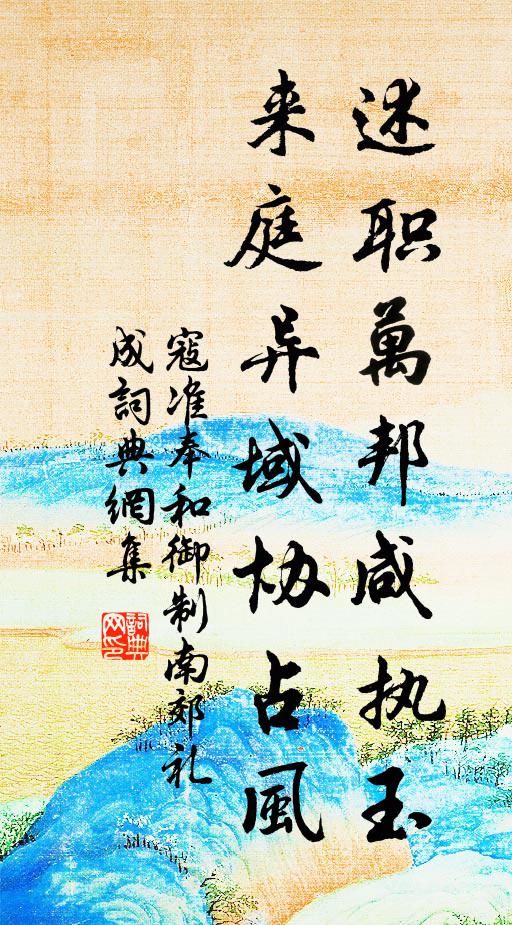 述职萬邦咸执玉
来庭异域协占風
寇准奉和御制南郊礼
成詞典網集
詞典
网印